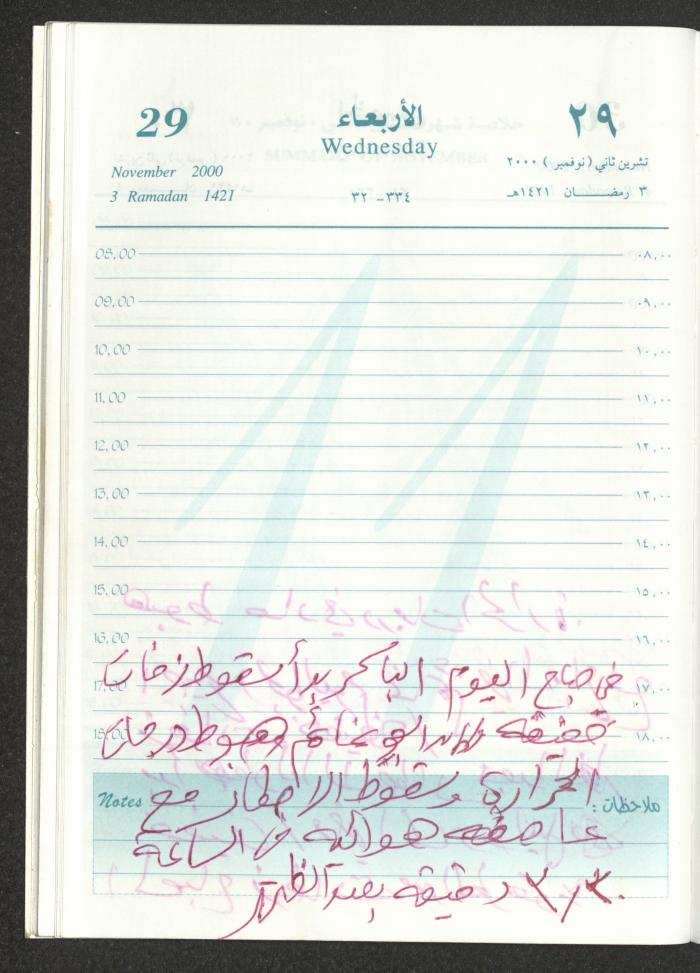 29 الأربعاء ٢٩
Wednesday
November 2000 تشرين ثاني (نوفمبر) ٢٠٠٠
3 Ramadan 1421 ٣٣٤ - ٣٢ ٣ رمضان ١٤٢١هـ
08,00 ٠٨,٠٠
09,00 ٠٩,٠٠
10,00 ١٠,٠٠
11,00 ١١,٠٠
12,00 ١٢,٠٠
13,00 ١٣,٠٠
14,00 ١٤,٠٠
15,00 ١٥,٠٠
16,00 ١٦,٠٠
في صباح اليوم الباكر بدأ سقوط زخات
17,00 ١٧,٠٠
خفيفه غائم وهبوط درجات
18,00 ١٨,٠٠
الحرارة وسقوط الامطار مع
Notes ملاحظات :
عاصفه هوائية في الساعة
٣,٣٠ دقيقه بعد الظهر